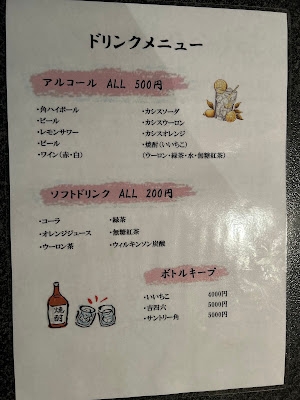 ドリンクメニュー
アルコール ALL 500円
・角ハイボール
・ビール
・レモンサワー
・ビール
・ワイン(赤・白)
・カシスソーダ
・カシスウーロン
・カシスオレンジ
・焼酎(いいちこ)
(ウーロン・緑茶・水・無糖紅茶)
ソフトドリンク ALL 200円
・コーラ
・オレンジジュース
・ウーロン茶
・緑茶
・無糖紅茶
・ウィルキンソン炭酸
ボトルキープ
・いいちこ 4000円
・吉四六 5000円
・サントリー角 5000円
焼酎